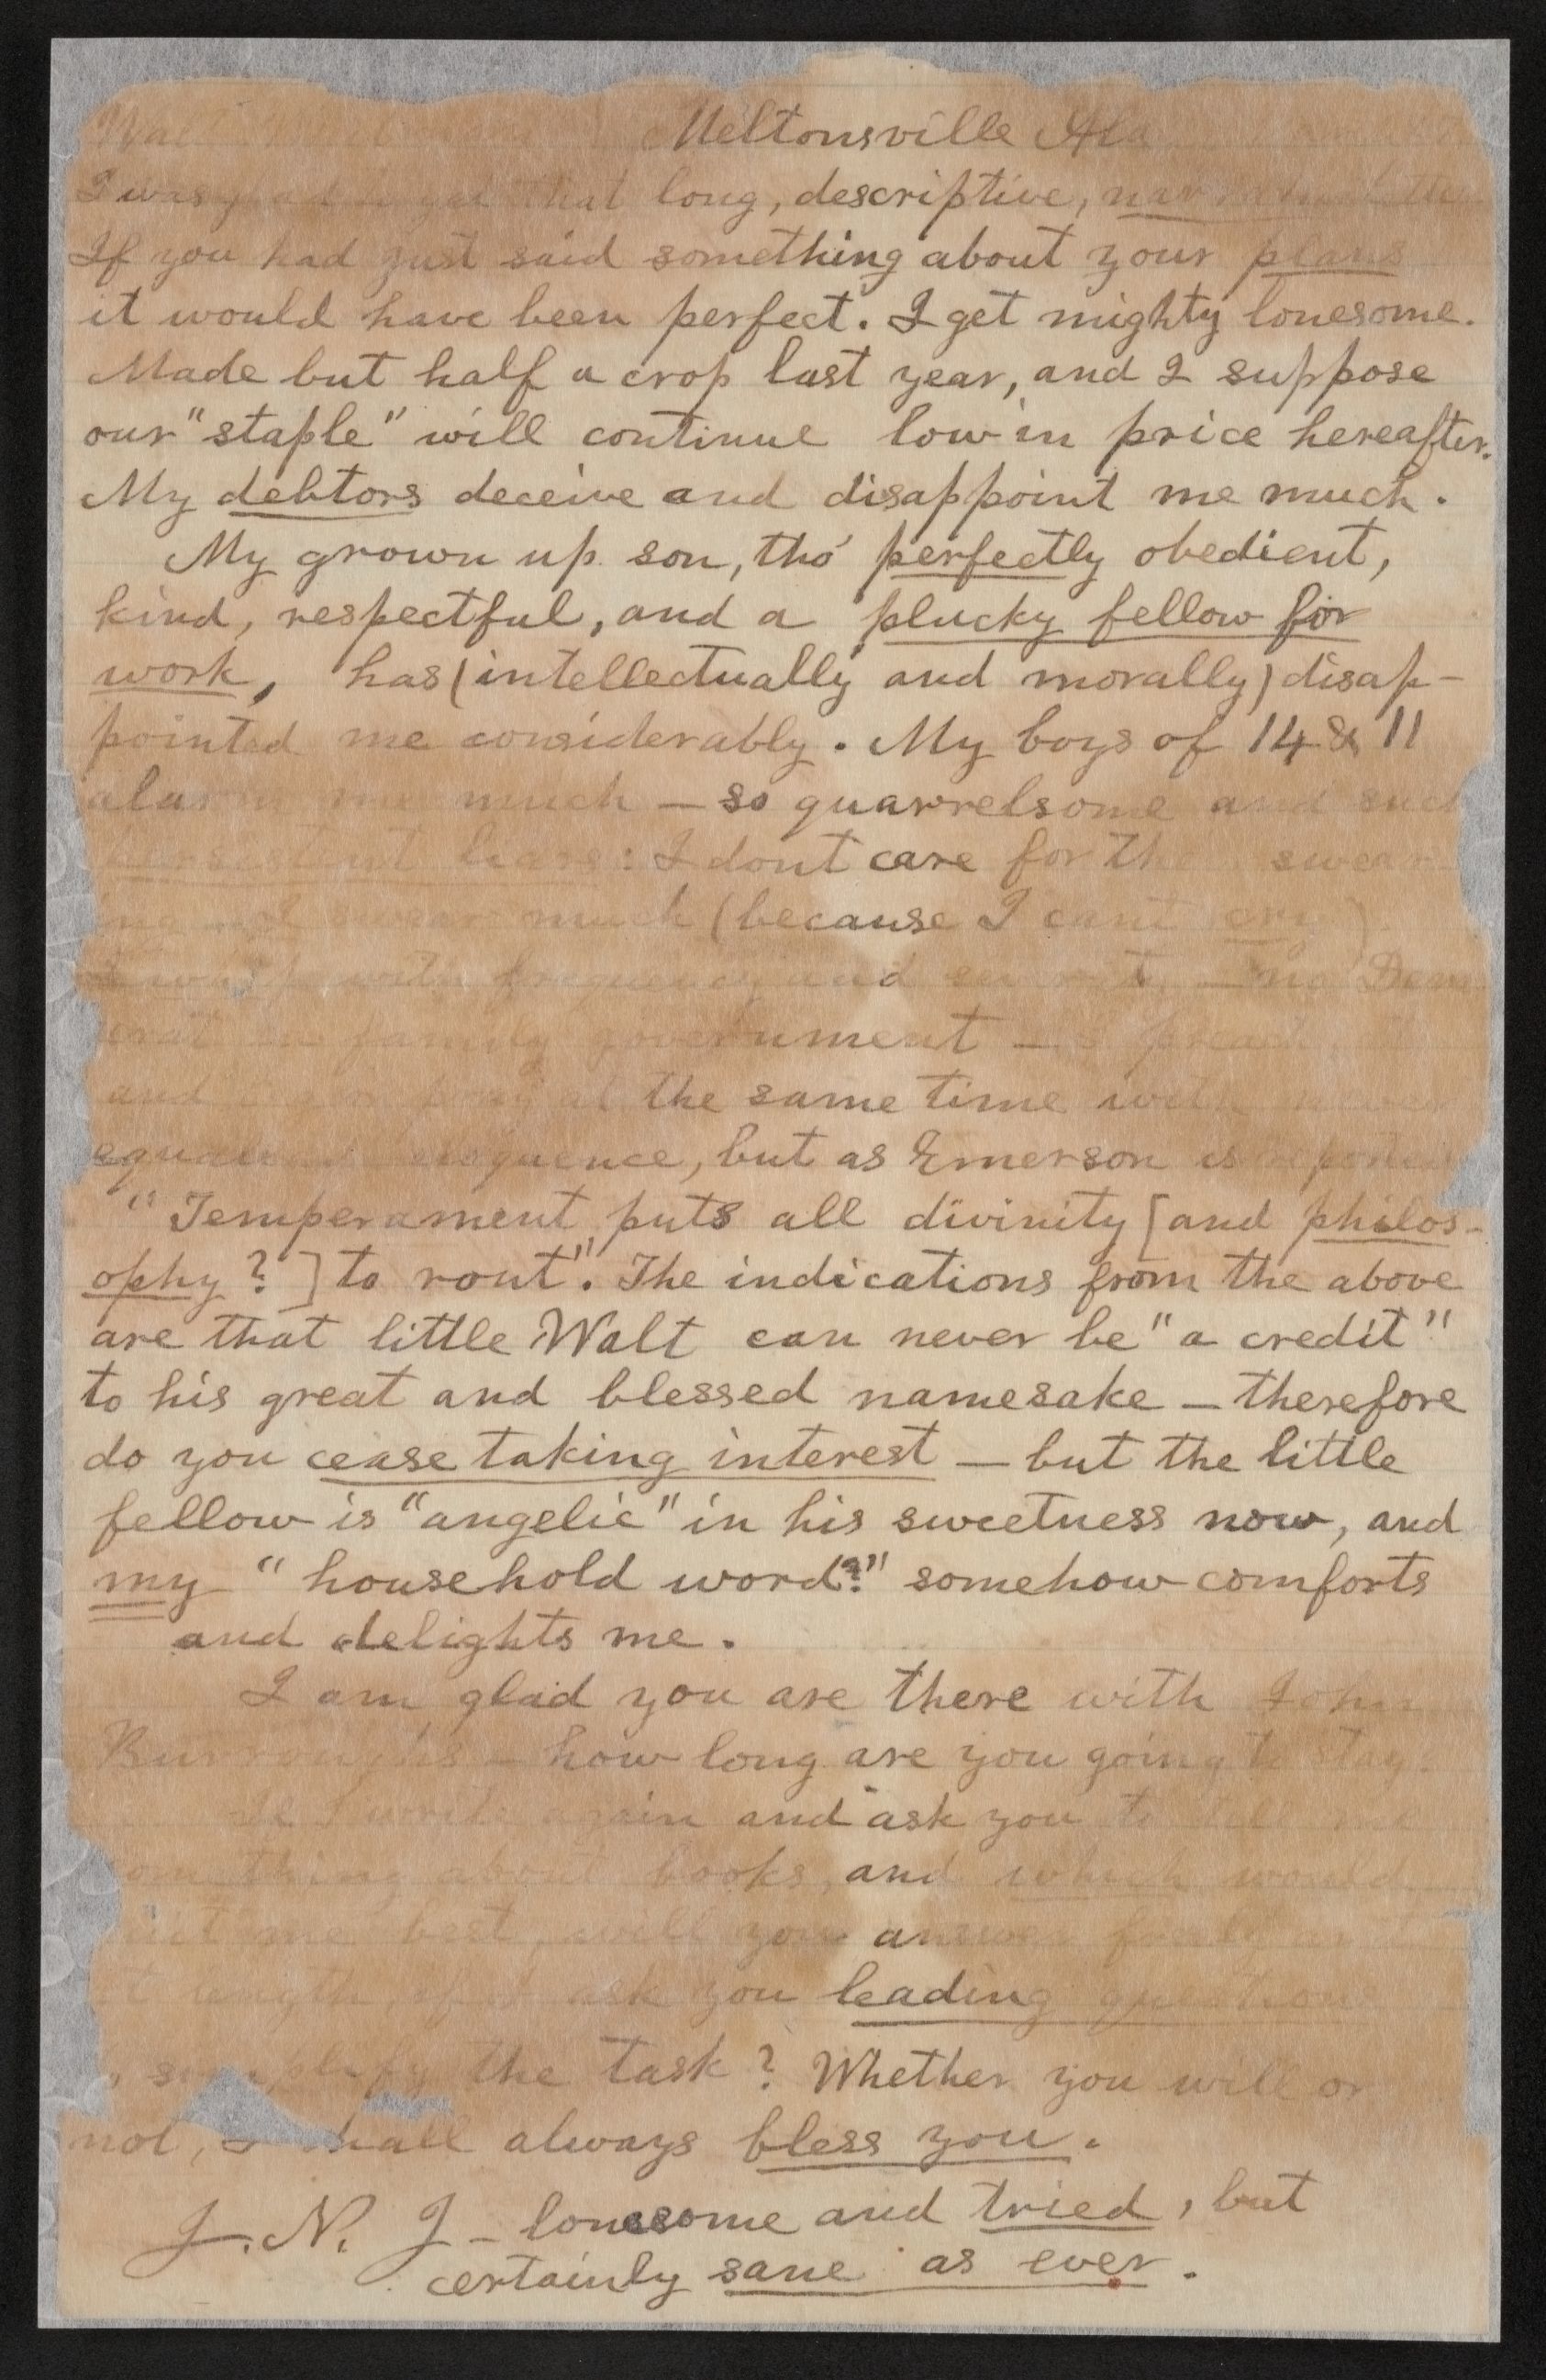 Meltonsville Ala
I was glad to get that long, descriptive,
If you had just said something about your plans
it would have been perfect. I get mighty lonesome.
Made but half a crop last year, and I suppose
our "staple" will continue low in price hereafter.
My debtors deceive and disappoint me much.
My grown up son, tho' perfectly obedient,
kind, respectful, and a plucky fellow for
work, has (intellectually and morally) disap-
pointed me considerably. My boys of 14 & 11
alarm me much — so quarrelsome and such
persistent liars: I dont care for the swear-
ing not swear much (because I cant cry)
I whip with frequency and — no Dem
ocrat in family government — I preach
and at the same time with
eloquence, but as Emerson is
"Temperament puts all divinity [and philos-
ophy?] to rout". The indications from the above
are that little Walt can never be "a credit"
to his great and blessed namesake — therefore
do you cease taking interest — but the little
fellow is "angelic" in his sweetness now, and
my "household word?" somehow comforts
and delights me.
I am glad you are there with John
Burroughs — how long are you going to stay?
If I write again and ask you to tell me
something about books, and which would
suit me best, will you answer freely
at length, if I ask you leading questions
simplify the task? Whether you will or
not, I shall always bless you.
J. N. J — lonesome and tried, but
certainly sane as ever.